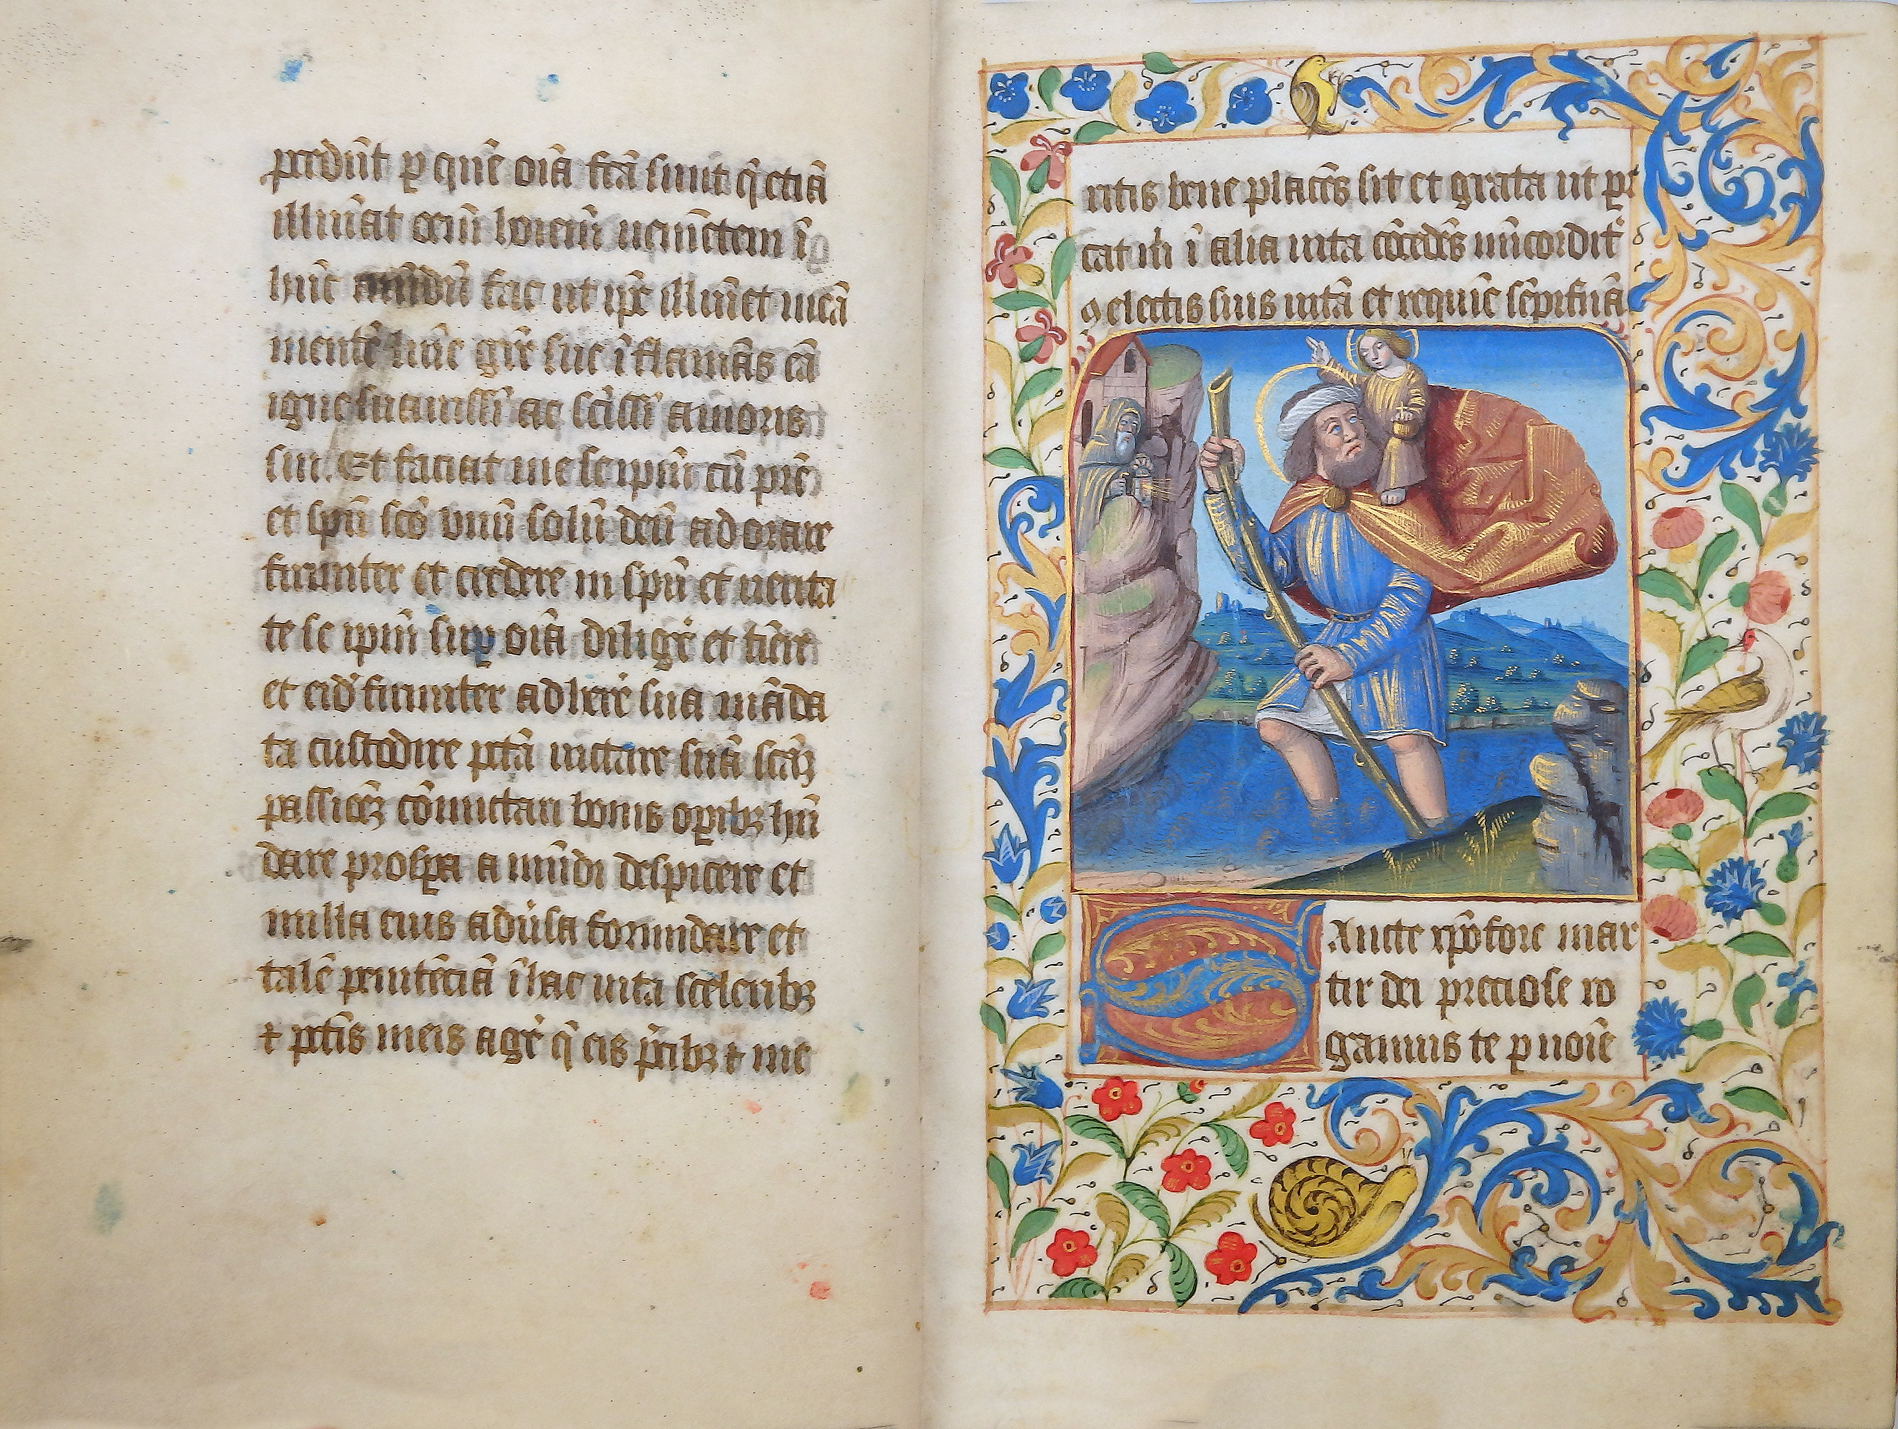 credūt p quē oīa fcā sunt q̄ etiā
illūīat oēm hoīem ueniētem ī
hūc mūdū fac ut ip̄e illūīet meā
mentē
igne suauissī ac scīssī amoris
sui. Et faciat me se ipm̄ cū prē
et spū scō unū solū deū adorare
firmiter et credere in spū et uerita
te se ipm̄ sup oīa diligē et timē
et eid firmiter adhere sua māda
ta custodire pctā uitare suā scāꝫ
passioēꝫ bonis opibꝫ
dare prospa mūdi despicere et
nulla eius aduersa formidare et
talē penitēciā ī hac uita sceleribꝫ
⁊ pctīs meis agē q̄ eis pribꝫ ⁊ me
ritis bene placēs sit et grata ut
cat m̄ ī alia uita cōcedēs
ꝯ electis suis uitā et requiē sēpit̄nā
Sancte xpofore mar
tir dei preciose ro
gamus te p noīe